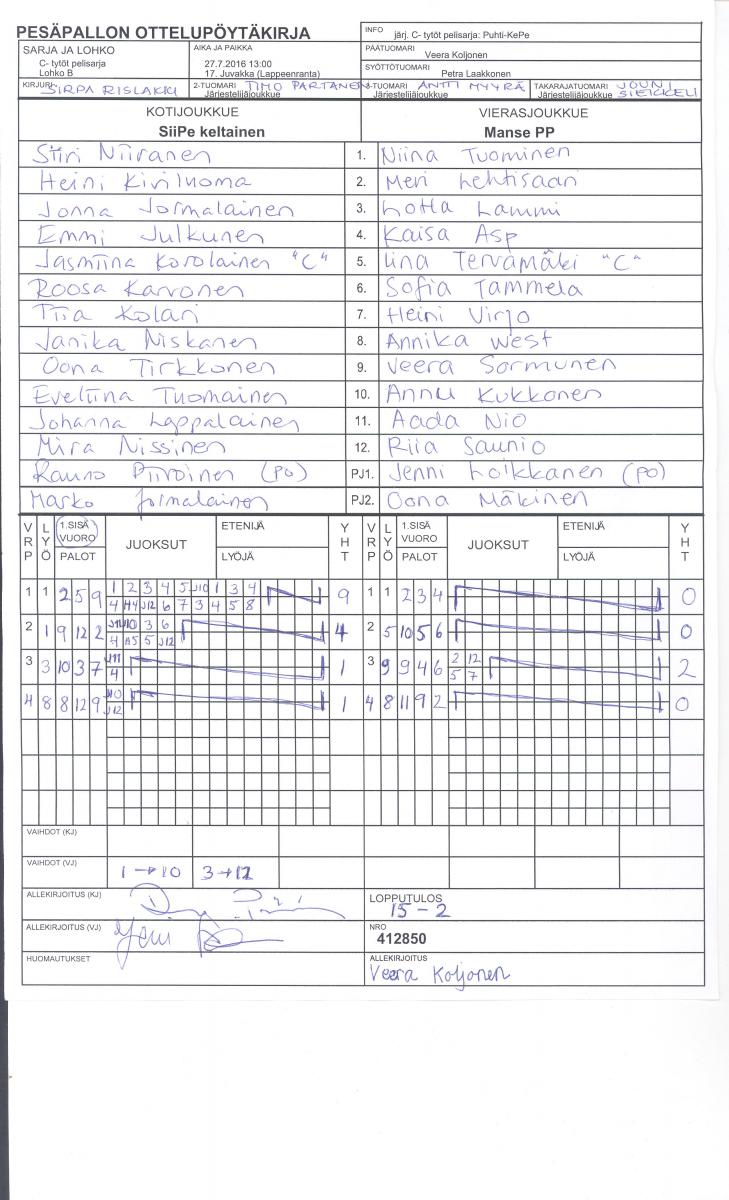 PESÄPALLON OTTELUPÖYTÄKIRJA
INFO järj. C- tytöt pelisarja: Puhti-KePe
SARJA JA LOHKO
C- tytöt pelisarja
Lohko B
AIKA JA PAIKKA
27.7.2016 13:00
17. Juvakka (Lappeenranta)
PÄÄTUOMARI
Veera Koljonen
SYÖTTÖTUOMARI
Petra Laakkonen
KIRJURI SIRPA RISLAKKI
2-TUOMARI TIMO PARTANEN
Järjestelijäjoukkue
3-TUOMARI ANTTI MYYRÄ
Järjestelijäjoukkue
TAKARAJATUOMARI JOUNI
Järjestelijäjoukkue SIEKKELI
KOTIJOUKKUE VIERASJOUKKUE
SiiPe keltainen Manse PP
Siiri Niiranen 1. Niina Tuominen
Heini Kiviluoma 2. Meri Lehtisaari
Jonna Jormalainen 3. Lotta Lammi
Emmi Julkunen 4. Kaisa Asp
Jasmiina Korolainen "C" 5. Iina Tervamäki "C"
Roosa Karvonen 6. Sofia Tammela
Tiia Kolari 7. Heini Virjo
Janika Niskanen 8. Annika West
Oona Tirkkonen 9. Veera Sormunen
Eveliina Tuomainen 10. Annu Kukkonen
Johanna Lappalainen 11. Aada Nio
Mira Nissinen 12. Riia Saunio
Rauno Piiroinen (PO) PJ1. Jenni Loikkanen (PO)
Marko Jormalainen PJ2. Oona Mäkinen
VRP LYÖ 1.SISÄ VUORO PALOT JUOKSUT ETENIJÄ LYÖJÄ YHT VRP LYÖ 1.SISÄ VUORO PALOT JUOKSUT ETENIJÄ LYÖJÄ YHT
1 1 2 5 9 1 2 3 4 5 J10 1 3 4 9 1 1 2 3 4 0
4 A4 J12 6 7 3 4 5 8
2 1 9 12 2 J11 J10 3 6 4 2 5 10 5 6 0
4 A5 5 J12
3 3 10 3 7 J11 1 3 9 9 4 6 2 12 2
4 5 7
4 8 8 12 9 J10 1 4 8 11 9 2 0
J12
VAIHDOT (KJ)
VAIHDOT (VJ) 1 → 10 3 → 12
ALLEKIRJOITUS (KJ)
LOPPUTULOS
15 - 2
ALLEKIRJOITUS (VJ)
NRO
412850
HUOMAUTUKSET
ALLEKIRJOITUS
Veera Koljonen